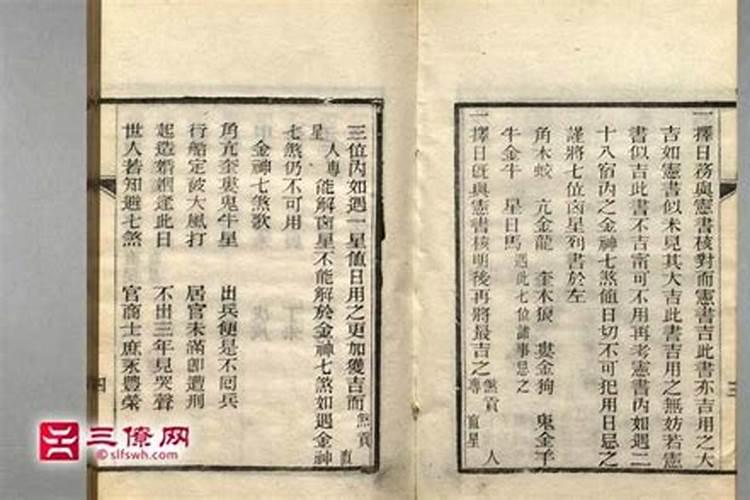 一擇日務與憲書核對而憲書吉此書亦吉用之大
吉如憲書似未見其大吉此書吉用之無妨若憲
書似吉此書不吉甯可不用再考憲書內如遇二
十八宿內之金神七煞値日切不可犯用日忌之
謹將七位凶星列書於左
角木蛟 亢金龍 奎木狼 婁金狗 鬼金羊
牛金牛 星日馬 遇此七位諸事忌之
一擇日旣與憲書核明後再將最吉之煞貢專 人直星
三
三位內如遇一星值日用之更加獲吉而煞貢 直
星人專能解凶星不能解於金神七煞如遇金神
七煞仍不可用
金神七煞歌
角亢奎婁鬼牛星 出兵便是不囘兵
行船定被大風打 居官未滿卽遭刑
起造婚姻逢此日 不出三年見哭聲
世人若知避七煞 官商士庶永豐榮
四
三僚网
©slfswh.com